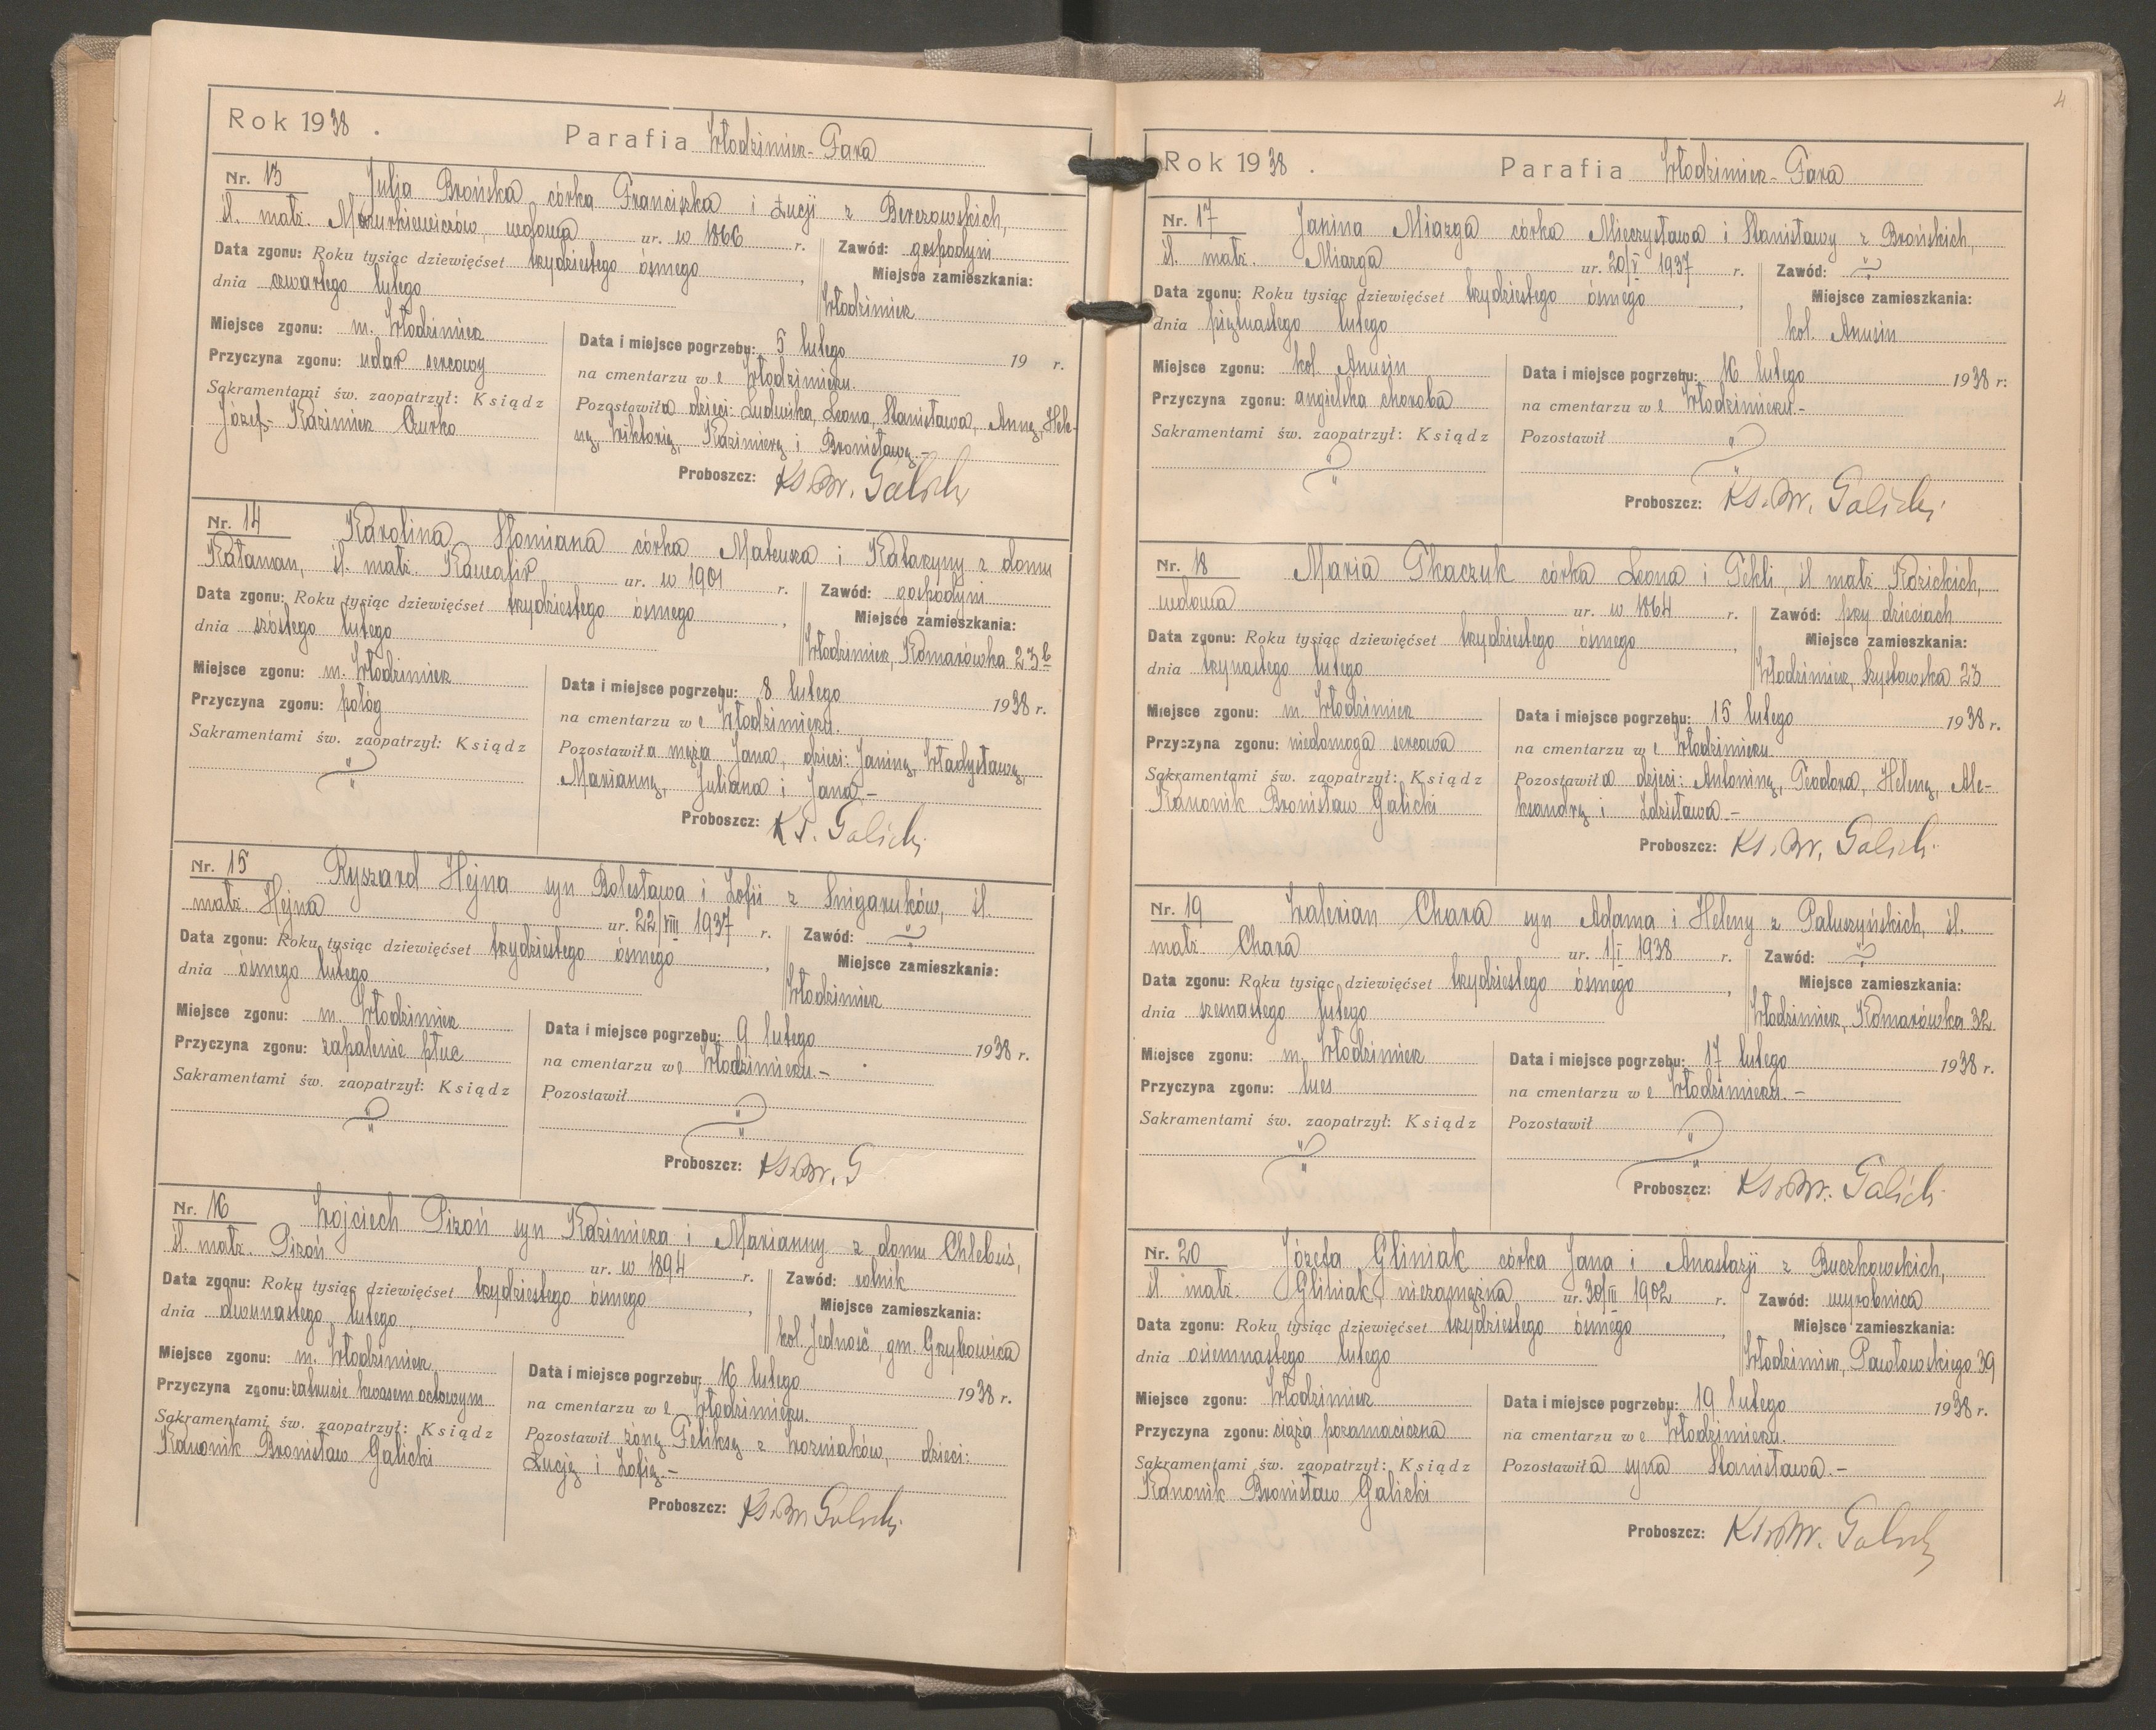 Rok 1938.
Parafia Włodzimierz-Fara
Nr. 13 Julja Brońska córka Franciszka i Łucji z Berezowskich,
śl. małż. Mazurkiewiczów, wdowa ur. w 1866 r. Zawód: gospodyni
Data zgonu: Roku tysiąc dziewięćset trzydziestego ósmego,
Miejsce zamieszkania:
dnia czwartego lutego
Włodzimierz
Miejsce zgonu: m. Włodzimierz
Data i miejsce pogrzebu: 5 lutego 19 r.
Przyczyna zgonu: udar sercowy
na cmentarzu we Włodzimierzu.
Sakramentami św. zaopatrzył: Ksiądz
Pozostawiła dzieci: Ludwika, Leona, Stanisława, Annę, Hele-
Józef-Kazimierz Czurko
nę, Wiktorię, Kazimierę i Bronisławę.-
Proboszcz: Ks. Br. Galicki
Nr. 14 Karolina Słomiana córka Mateusza i Katarzyny z domu
Kałaman, śl. małż. Kawafir ur. w 1901 r. Zawód: gospodyni
Data zgonu: Roku tysiąc dziewięćset trzydziestego ósmego,
Miejsce zamieszkania:
dnia szóstego lutego
Włodzimierz, Komarówka 23b
Miejsce zgonu: m. Włodzimierz
Data i miejsce pogrzebu: 8 lutego 1938 r.
Przyczyna zgonu: połóg
na cmentarzu we Włodzimierzu.
Sakramentami św. zaopatrzył: Ksiądz
Pozostawiła męża Jana, dzieci: Janinę, Władysławę,
Mariannę, Juliana i Jana.-
Proboszcz: Ks. Galicki
Nr. 15 Ryszard Hejna syn Bolesława i Zofii z Snigaruków, śl.
małż. Hejna ur. 22/VIII 1937 r. Zawód:
Data zgonu: Roku tysiąc dziewięćset trzydziestego ósmego,
Miejsce zamieszkania:
dnia ósmego lutego
Włodzimierz
Miejsce zgonu: m. Włodzimierz
Data i miejsce pogrzebu: 9 lutego 1938 r.
Przyczyna zgonu: zapalenie płuc
na cmentarzu we Włodzimierzu.-
Sakramentami św. zaopatrzył: Ksiądz
Pozostawił
Proboszcz: Ks. Br. G
Nr. 16 Wojciech Pizoń syn Kazimierza i Marianny z domu Chlebuś,
śl. małż. Pizoń ur. w 1894 r. Zawód: rolnik
Data zgonu: Roku tysiąc dziewięćset trzydziestego ósmego,
Miejsce zamieszkania:
dnia dwunastego lutego
kol. Jedność, gm. Grzybowica
Miejsce zgonu: m. Włodzimierz
Data i miejsce pogrzebu: 16 lutego 1938 r.
Przyczyna zgonu: zatrucie kwasem octowym
na cmentarzu we Włodzimierzu.
Sakramentami św. zaopatrzył: Ksiądz
Pozostawił żonę Feliksę z Woźniaków, dzieci:
Kanonik Bronisław Galicki
Łucję i Zofię.-
Proboszcz: Ks. Br. Galicki
4
Rok 1938.
Parafia Włodzimierz-Fara
Nr. 17 Janina Miazga córka Mieczysława i Stanisławy z Brońskich,
śl. małż. Miazga ur. 20/V 1937 r. Zawód:
Data zgonu: Roku tysiąc dziewięćset trzydziestego ósmego,
Miejsce zamieszkania:
dnia piętnastego lutego
kol. Anusin
Miejsce zgonu: kol. Anusin
Data i miejsce pogrzebu: 16 lutego 1938 r.
Przyczyna zgonu: angielska choroba
na cmentarzu we Włodzimierzu.-
Sakramentami św. zaopatrzył: Ksiądz
Pozostawił
Proboszcz: Ks. Br. Galicki
Nr. 18 Maria Tkaczuk córka Leona i Tekli, śl. małż. Kozickich,
wdowa ur. w 1864 r. Zawód: przy dzieciach
Data zgonu: Roku tysiąc dziewięćset trzydziestego ósmego,
Miejsce zamieszkania:
dnia trzynastego lutego
Włodzimierz, 23
Miejsce zgonu: m. Włodzimierz
Data i miejsce pogrzebu: 15 lutego 1938 r.
Przyczyna zgonu: niedomoga sercowa
na cmentarzu we Włodzimierzu.
Sakramentami św. zaopatrzył: Ksiądz
Pozostawiła dzieci: Antoninę, Teodora, Helenę, Ale-
Kanonik Bronisław Galicki
ksandrę i Zdzisława.-
Proboszcz: Ks. Br. Galicki
Nr. 19 Walerian Chara syn Adama i Heleny z Paluszyńskich, śl.
małż. Chara ur. 1/I 1938 r. Zawód:
Data zgonu: Roku tysiąc dziewięćset trzydziestego ósmego,
Miejsce zamieszkania:
dnia szesnastego lutego
Włodzimierz, Komarówka 32
Miejsce zgonu: m. Włodzimierz
Data i miejsce pogrzebu: 17 lutego 1938 r.
Przyczyna zgonu: lues
na cmentarzu we Włodzimierzu.-
Sakramentami św. zaopatrzył: Ksiądz
Pozostawił
Proboszcz: Ks. Br. Galicki
Nr. 20 Józefa Gliniak córka Jana i Anastazji z Buczkowskich,
śl. małż. Gliniak, niezamężna ur. 30/III 1902 r. Zawód: wyrobnica
Data zgonu: Roku tysiąc dziewięćset trzydziestego ósmego,
Miejsce zamieszkania:
dnia osiemnastego lutego
Włodzimierz, Pawłowskiego 39
Miejsce zgonu: Włodzimierz
Data i miejsce pogrzebu: 19 lutego 1938 r.
Przyczyna zgonu: ciąża pozamaciczna
na cmentarzu we Włodzimierzu.
Sakramentami św. zaopatrzył: Ksiądz
Pozostawiła syna Stanisława.-
Kanonik Bronisław Galicki
Proboszcz: Ks. Br. Galicki